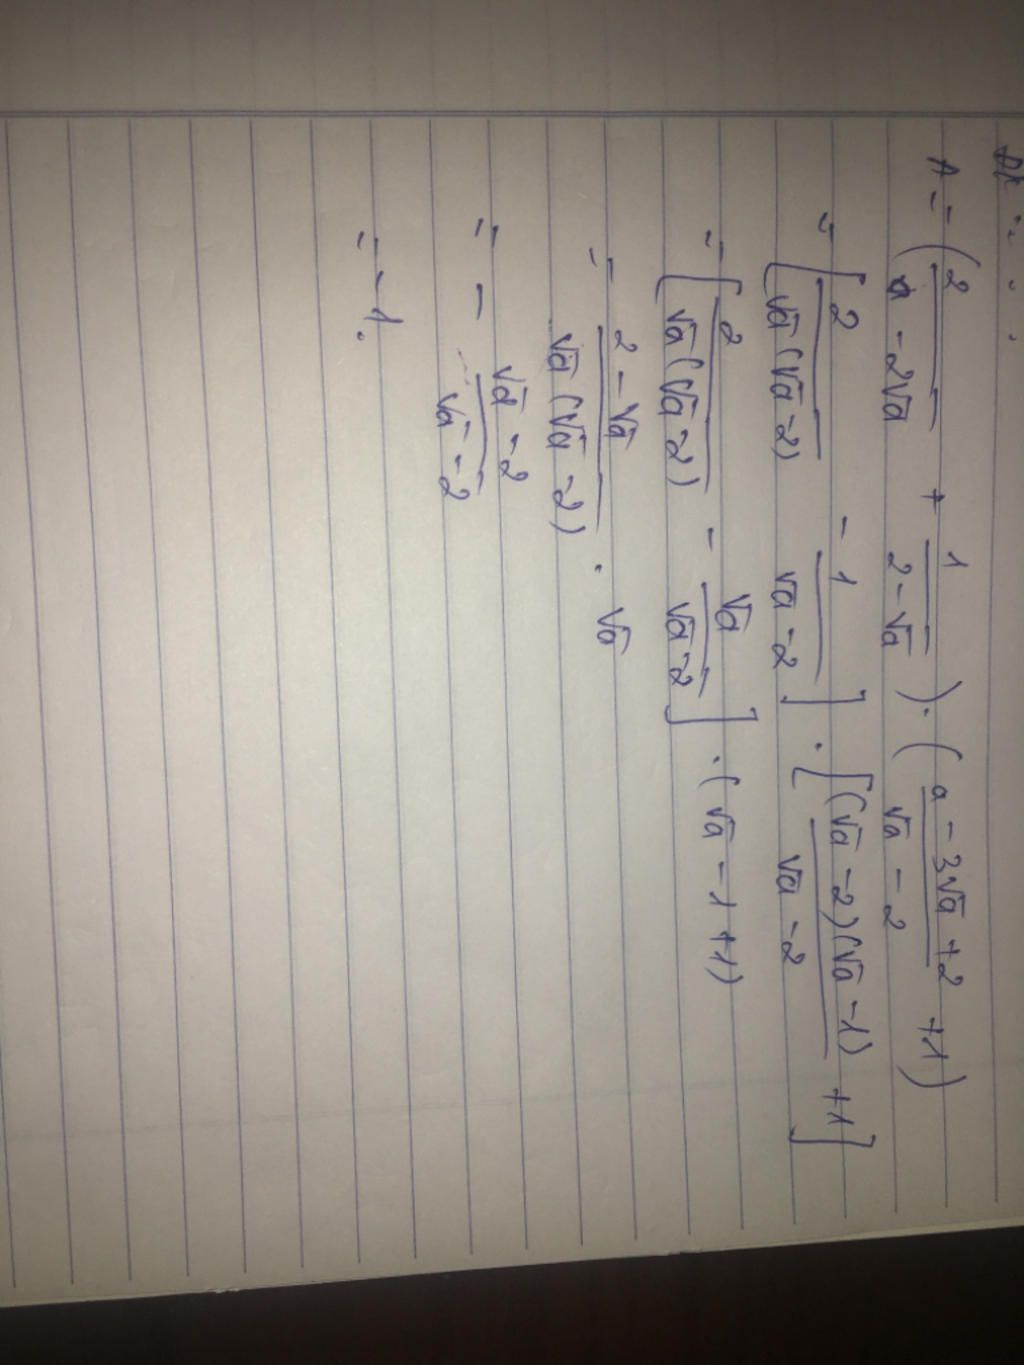 ĐK : . . .
A = ( 2/(a - 2√a) + 1/(2 - √a) ) . ( (a - 3√a + 2)/(√a - 2) + 1 )
= [ 2/(√a (√a - 2)) - 1/(√a - 2) ] . [ ((√a - 2)(√a - 1))/(√a - 2) + 1 ]
= [ 2/(√a (√a - 2)) - √a/(√a - 2) ] . (√a - 1 + 1)
= (2 - √a)/(√a (√a - 2)) . √a
= - (√a - 2)/(√a - 2)
= - 1.